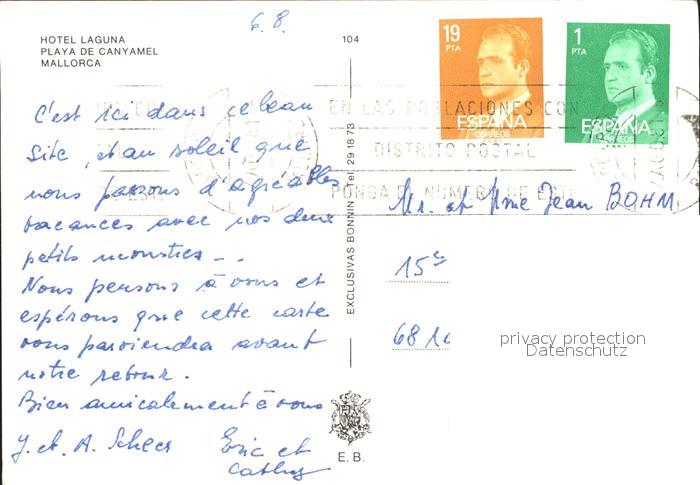 6.8.
HOTEL LAGUNA
PLAYA DE CANYAMEL
MALLORCA
104
19
PTA
ESPAÑA
CORREOS
1
PTA
ESPAÑA
CORREOS
EN LAS POBLACIONES CON
DISTRITO POSTAL
PONGA EL NUMERO DE ESTE
C'est ici dans ce beau
Site, et au soleil que
nous passons d'agréables
vacances avec nos deux
petits monstres - -
Nous pensons à vous et
espérons que cette carte
vous parviendra avant
notre retour.
Bien amicalement à vous
J. et A. Scheer
Eric et
Cathy
EXCLUSIVAS BONNIN Tel. 29 18 73
E. B.
Mr. et Mme Jean BOHM
15
68
privacy protection
Datenschutz